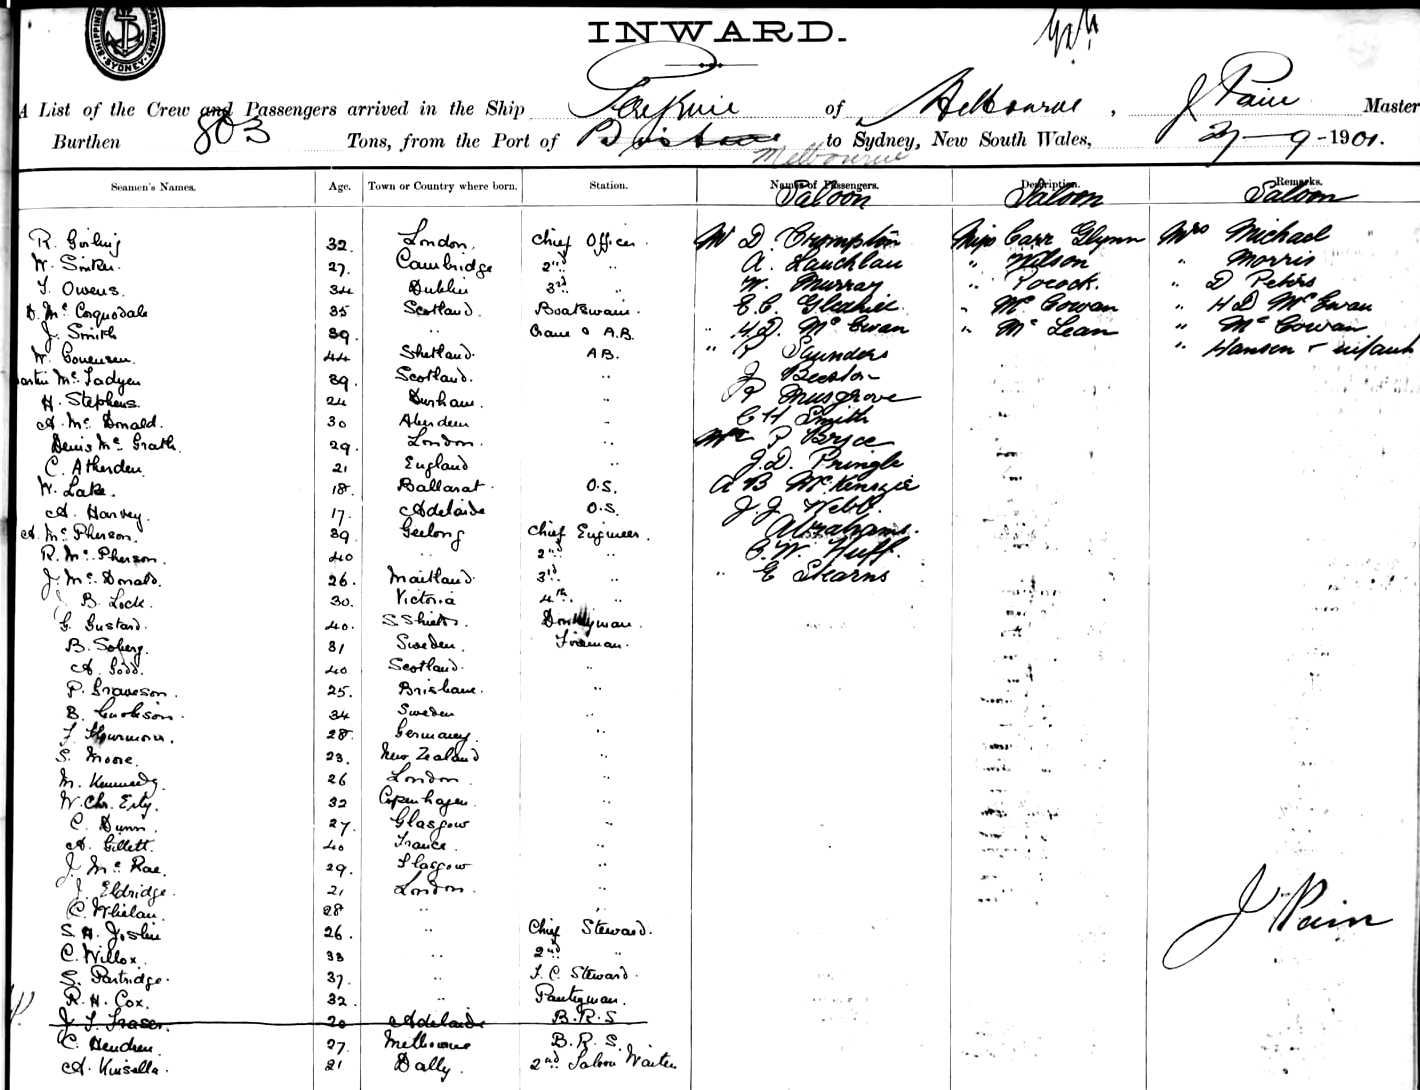 SHIPPING DEPARTMENT SYDNEY
INWARD.
A List of the Crew and Passengers arrived in the Ship of Melbourne, J Pain Master
Burthen 803 Tons, from the Port of Brisbane Melbourne to Sydney, New South Wales, 27-9-1901.
Seamen's Names. Age. Town or Country where born. Station. Names of Passengers. Description. Remarks.
Saloon Saloon Saloon
R. Girling 32. London. Chief Officer. Mr D. Crompton Miss Carr Glynn Mrs Michael
W. 27. Cambridge 2nd " A. Lauchlan " Wilson " Morris
T. Owens. 34 Dublin 3rd " W. Murray " Pocock. " D Peters
D. Mc Corquodale 35 Scotland. Boatswain. E. C. Gledhill " Mc Cowan " H D McEwan
J. Smith 39. " A.B. " H.D. McEwan " Mc Lean " McCowan
W. 44 Shetland. AB. " Saunders " Hansen + infant
Mc Fadyen 39. Scotland. " J Beeston
H. Stephens. 24 Durham. " R Musgrove
A. Mc Donald. 30 Aberdeen " C H Smith
Denis Mc Grath. 29. London. " Bryce
C. Atherden. 21 England " J. D. Pringle
W. Lake. 18. Ballarat. O.S. A B McKenzie
A. Harvey. 17. Adelaide O.S. J. J. Webb.
A. Mc Pherson. 39 Geelong Chief Engineer. Abrahams.
R. Mc Pherson. 40 " 2nd " C. W. Huff.
J. Mc Donald. 26. Maitland. 3rd " " E Stearns
B. Lock. 30. Victoria 4th "
G. Gustard. 40. S. Shields. Donkeyman.
B. Soberg. 31 Sweden. Fireman.
A. Todd. 40 Scotland. "
P. Graveson. 25. Brisbane. "
B. 34 Sweden "
F. 28. Germany. "
S. Moore. 23. New Zealand "
M. Kennedy. 26 London. "
W. Chr. 32 Copenhagen. "
C. Dunn. 27. Glasgow "
A. Gillett. 40 France. "
J. Mc Rae. 29. Glasgow "
J. Eldridge. 21 London. "
C. Whelan. 28 " "
S. H. Joslin 26. " Chief Steward.
C. Willox. 33 " 2nd "
S. Partridge. 37. " F. C. Steward.
R. H. Cox. 32. " Pantryman.
J. F. Fraser. 20 Adelaide B.R.S
C. Hendren. 27. Melbourne B.R.S.
A. Kinsella. 21 Dally. 2nd Saloon Waiter
J Pain